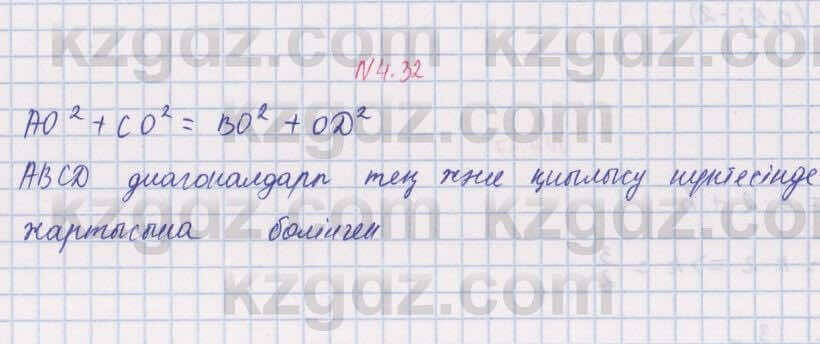 N4.32
AO² + CO² = BO² + OD²
ABCD диагоналдарп тең және қиылысу нүктесінде
жартысына бөлінген
kzgdz.com
kzgdz.com
kzgdz.com